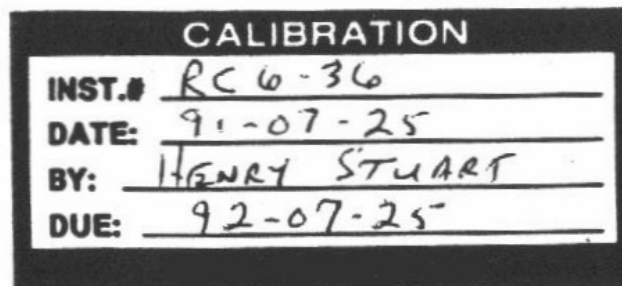 CALIBRATION
INST.# RC6-36
DATE: 91-07-25
BY: HENRY STUART
DUE: 92-07-25